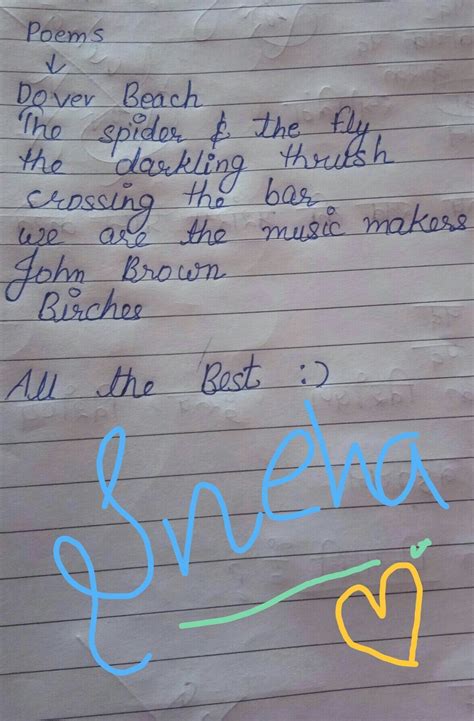 Poems
↓
Dover Beach
The spider & the fly
the darkling thrush
crossing the bar
we are the music makers
John Brown
Birches
All the Best :)
Sneha